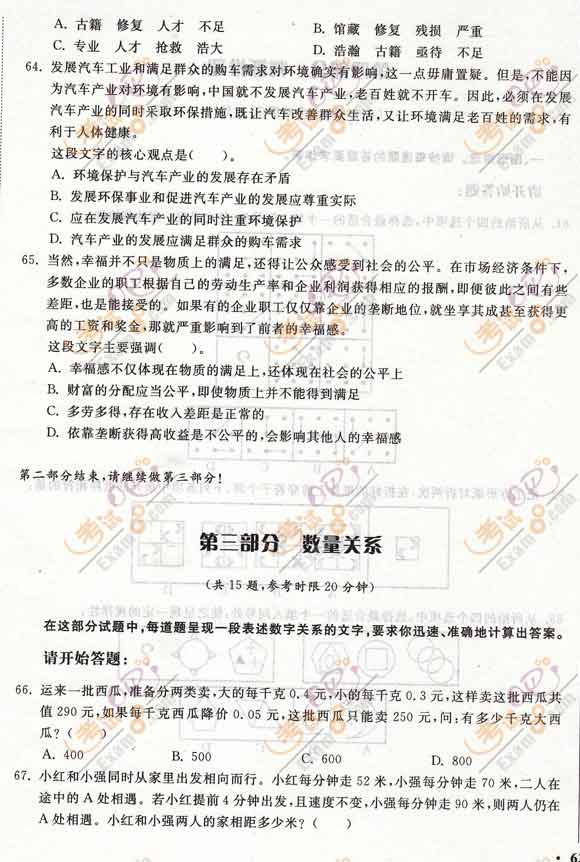 A. 古籍 修复 人才 不足 B. 馆藏 修复 残损 严重
C. 专业 人才 抢救 浩大 D. 浩瀚 古籍 亟待 不足
64. 发展汽车工业和满足群众的购车需求对环境确实有影响,这一点毋庸置疑。但是,不能因
为汽车产业对环境有影响,中国就不发展汽车产业,老百姓就不开车。因此,必须在发展
汽车产业的同时采取环保措施,既让汽车改善群众生活,又让环境满足老百姓的需求,有
利于人体健康。
这段文字的核心观点是( )。
A. 环境保护与汽车产业的发展存在矛盾
B. 发展环保事业和促进汽车产业的发展应尊重实际
C. 应在发展汽车产业的同时注重环境保护
D. 汽车产业的发展应满足群众的购车需求
65. 当然,幸福并不只是物质上的满足,还得让公众感受到社会的公平。在市场经济条件下,
多数企业的职工根据自己的劳动生产率和企业利润获得相应的报酬,即便彼此之间有些
差距,也是能接受的。如果有的企业职工仅仅靠企业的垄断地位,就坐享其成甚至获得更
高的工资和奖金,那就严重影响到了前者的幸福感。
这段文字主要强调( )。
A. 幸福感不仅体现在物质的满足上,还体现在社会的公平上
B. 财富的分配应当公平,即使物质上并不能得到满足
C. 多劳多得,存在收入差距是正常的
D. 依靠垄断获得高收益是不公平的,会影响其他人的幸福感
第二部分结束,请继续做第三部分!
第三部分 数量关系
(共15题,参考时限20分钟)
在这部分试题中,每道题呈现一段表述数字关系的文字,要求你迅速、准确地计算出答案。
请开始答题:
66. 运来一批西瓜,准备分两类卖,大的每千克0.4元,小的每千克0.3元,这样卖这批西瓜共
值290元,如果每千克西瓜降价0.05元,这批西瓜只能卖250元,问:有多少千克大西
瓜?( )
A. 400 B. 500 C. 600 D. 800
67. 小红和小强同时从家里出发相向而行。小红每分钟走52米,小强每分钟走70米,二人在
途中的A处相遇。若小红提前4分钟出发,且速度不变,小强每分钟走90米,则两人仍在
A处相遇。小红和小强两人的家相距多少米?( )